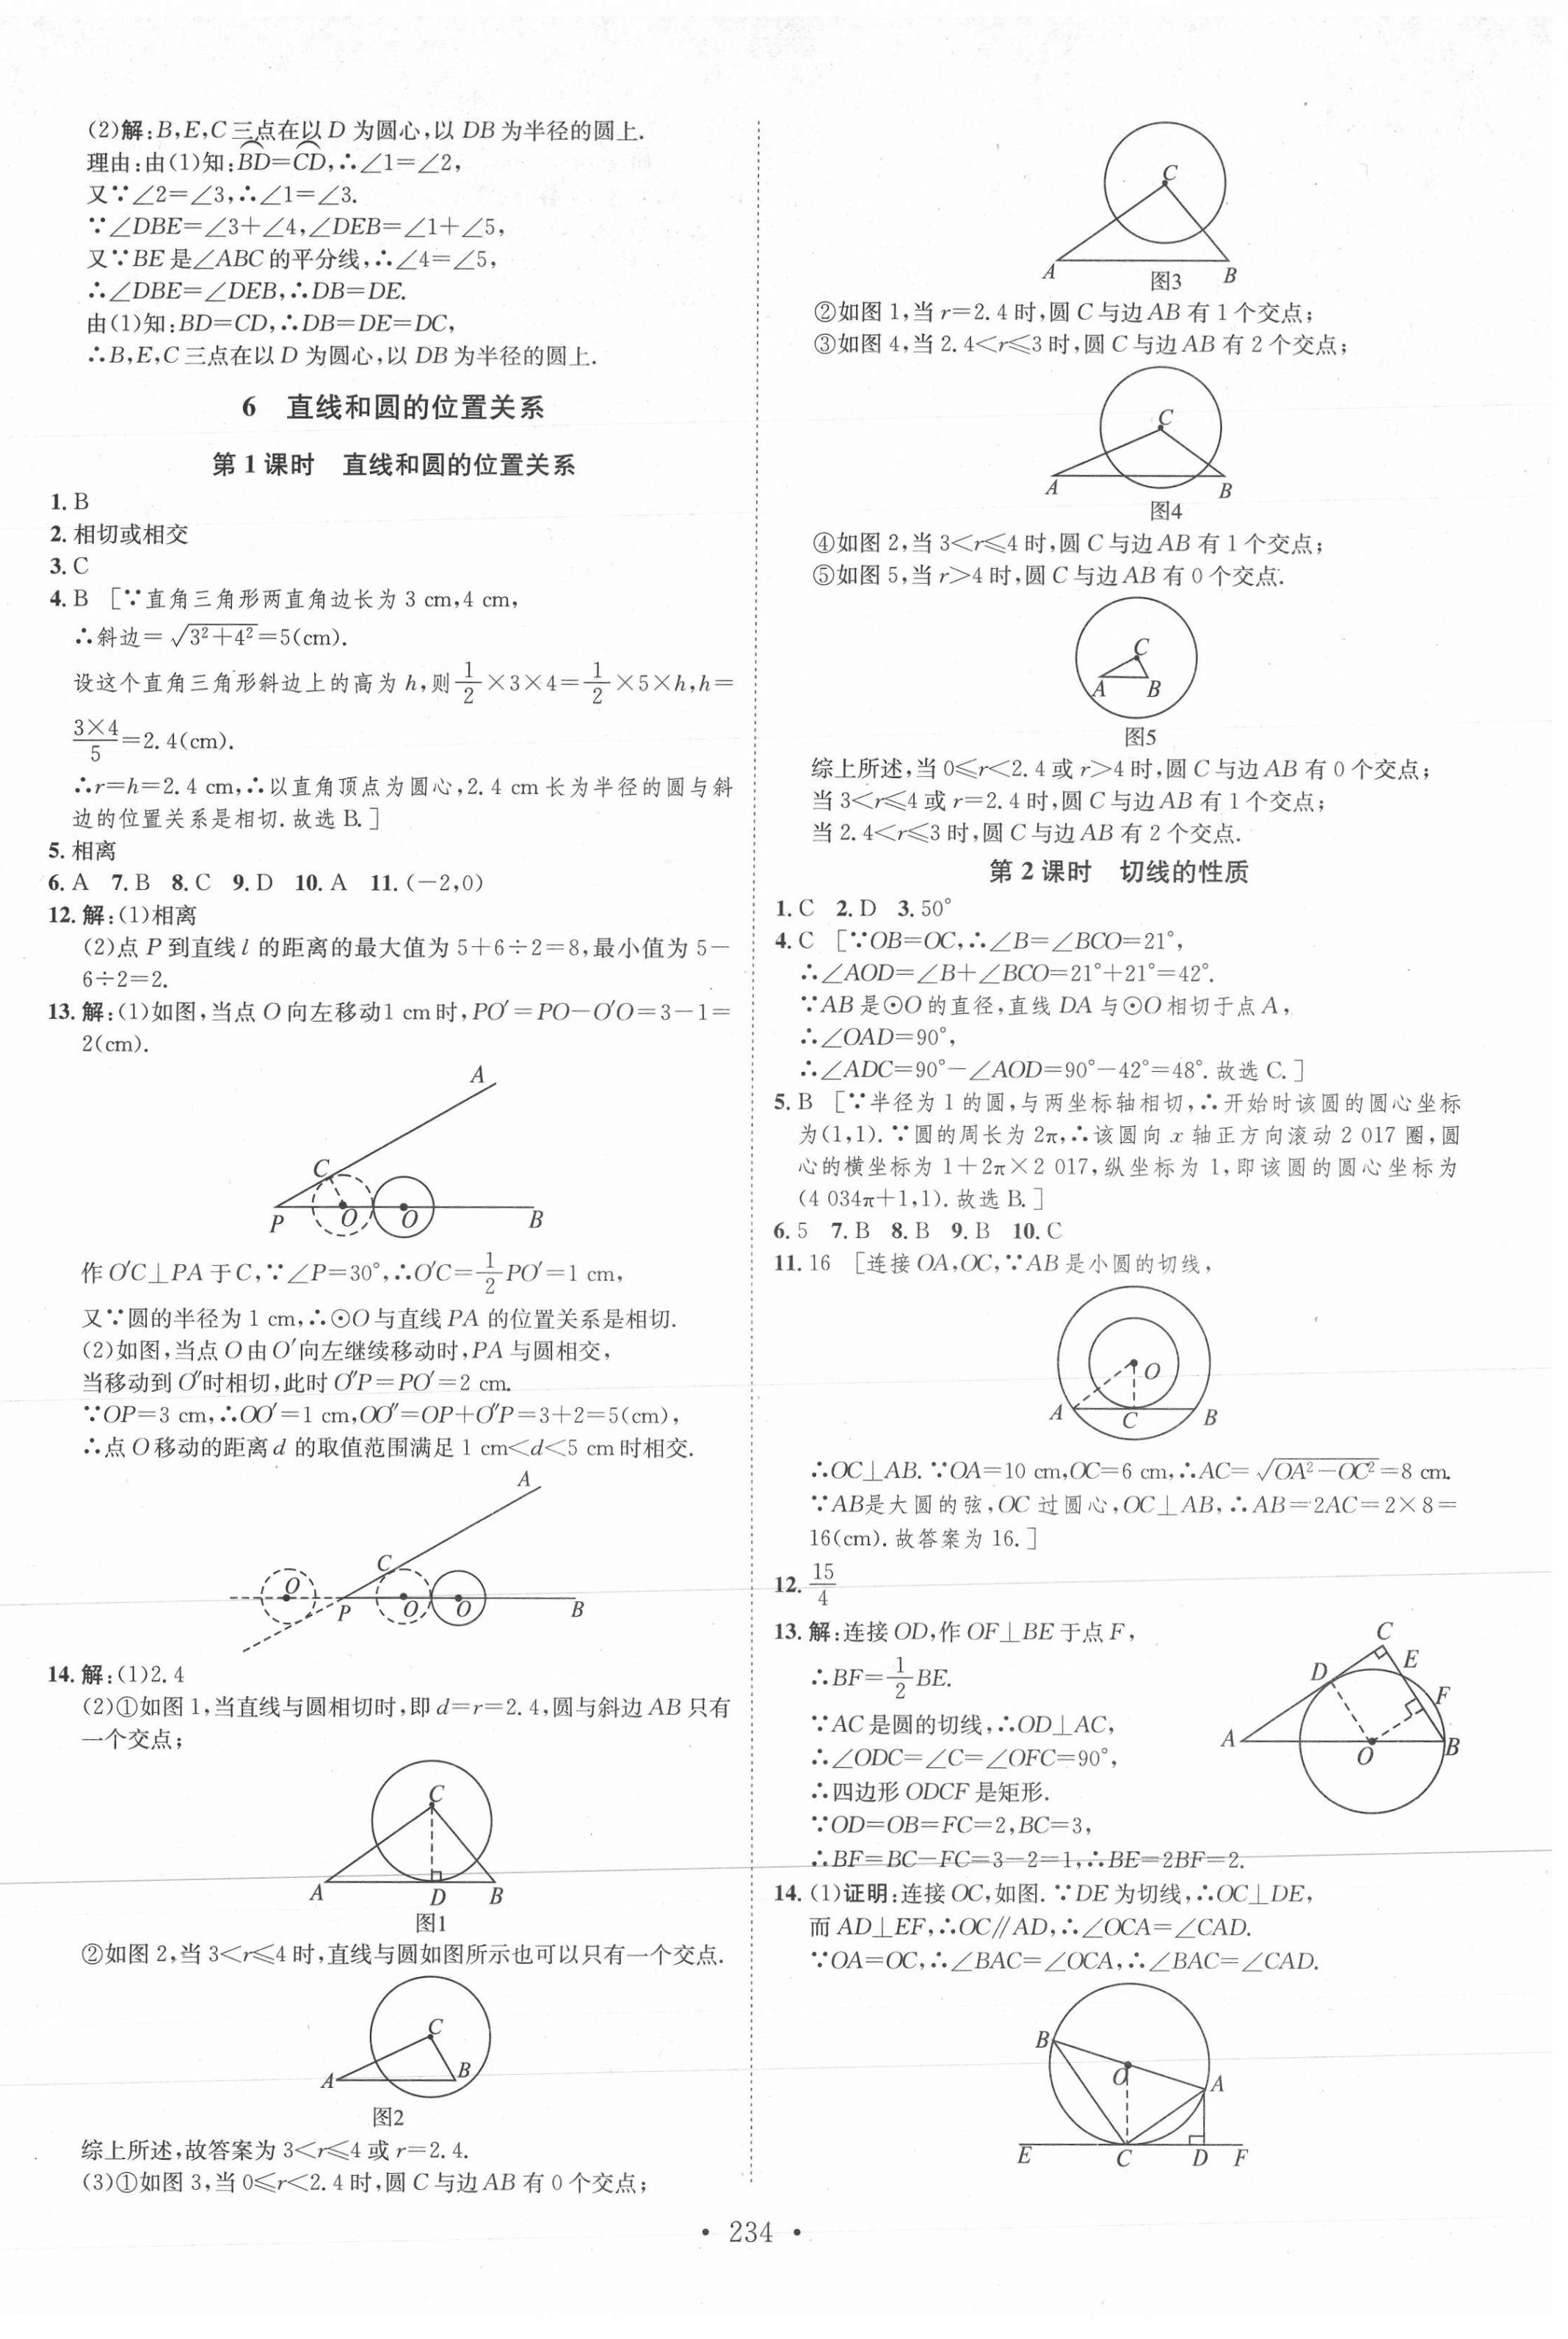 (2)解:B,E,C三点在以D为圆心,以DB为半径的圆上.
理由:由(1)知:BD=CD,∴∠1=∠2,
又∵∠2=∠3,∴∠1=∠3.
∵∠DBE=∠3+∠4,∠DEB=∠1+∠5,
又∵BE是∠ABC的平分线,∴∠4=∠5,
∴∠DBE=∠DEB,∴DB=DE.
由(1)知:BD=CD,∴DB=DE=DC,
∴B,E,C三点在以D为圆心,以DB为半径的圆上.
6 直线和圆的位置关系
第1课时 直线和圆的位置关系
1. B
2. 相切或相交
3. C
4. B [∵直角三角形两直角边长为3 cm,4 cm,
∴斜边=√(3²+4²)=5(cm).
设这个直角三角形斜边上的高为h,则1/2×3×4=1/2×5×h,h=
3×4/5=2.4(cm).
∴r=h=2.4 cm,∴以直角顶点为圆心,2.4 cm长为半径的圆与斜
边的位置关系是相切.故选B.]
5. 相离
6. A 7. B 8. C 9. D 10. A 11. (-2,0)
12. 解:(1)相离
(2)点P到直线l的距离的最大值为5+6÷2=8,最小值为5-
6÷2=2.
13. 解:(1)如图,当点O向左移动1 cm时,PO′=PO-O′O=3-1=
2(cm).
A
C
P O O B
作O′C⊥PA于C,∵∠P=30°,∴O′C=1/2PO′=1 cm,
又∵圆的半径为1 cm,∴⊙O与直线PA的位置关系是相切.
(2)如图,当点O由O′向左继续移动时,PA与圆相交,
当移动到O″时相切,此时O″P=PO′=2 cm.
∵OP=3 cm,∴OO′=1 cm,OO″=OP+O″P=3+2=5(cm),
∴点O移动的距离d的取值范围满足1 cm<d<5 cm时相交.
A
C
O P O O B
14. 解:(1)2.4
(2)①如图1,当直线与圆相切时,即d=r=2.4,圆与斜边AB只有
一个交点;
C
A D B
图1
②如图2,当3<r≤4时,直线与圆如图所示也可以只有一个交点.
C
A B
图2
综上所述,故答案为3<r≤4或r=2.4.
(3)①如图3,当0≤r<2.4时,圆C与边AB有0个交点;
C
A B
图3
②如图1,当r=2.4时,圆C与边AB有1个交点;
③如图4,当2.4<r≤3时,圆C与边AB有2个交点;
C
A B
图4
④如图2,当3<r≤4时,圆C与边AB有1个交点;
⑤如图5,当r>4时,圆C与边AB有0个交点.
C
A B
图5
综上所述,当0≤r<2.4或r>4时,圆C与边AB有0个交点;
当3<r≤4或r=2.4时,圆C与边AB有1个交点;
当2.4<r≤3时,圆C与边AB有2个交点.
第2课时 切线的性质
1. C 2. D 3. 50°
4. C [∵OB=OC,∴∠B=∠BCO=21°,
∴∠AOD=∠B+∠BCO=21°+21°=42°.
∵AB是⊙O的直径,直线DA与⊙O相切于点A,
∴∠OAD=90°,
∴∠ADC=90°-∠AOD=90°-42°=48°.故选C.]
5. B [∵半径为1的圆,与两坐标轴相切,∴开始时该圆的圆心坐标
为(1,1).∵圆的周长为2π,∴该圆向x轴正方向滚动2 017圈,圆
心的横坐标为1+2π×2 017,纵坐标为1,即该圆的圆心坐标为
(4 034π+1,1).故选B.]
6. 5 7. B 8. B 9. B 10. C
11. 16 [连接OA,OC,∵AB是小圆的切线,
O
A C B
∴OC⊥AB.∵OA=10 cm,OC=6 cm,∴AC=√(OA²-OC²)=8 cm.
∵AB是大圆的弦,OC过圆心,OC⊥AB,∴AB=2AC=2×8=
16(cm).故答案为16.]
12. 15/4
13. 解:连接OD,作OF⊥BE于点F,
∴BF=1/2BE.
∵AC是圆的切线,∴OD⊥AC,
∴∠ODC=∠C=∠OFC=90°,
∴四边形ODCF是矩形.
∵OD=OB=FC=2,BC=3,
∴BF=BC-FC=3-2=1,∴BE=2BF=2.
C
D E
F
A O B
14. (1)证明:连接OC,如图.∵DE为切线,∴OC⊥DE,
而AD⊥EF,∴OC∥AD,∴∠OCA=∠CAD.
∵OA=OC,∴∠BAC=∠OCA,∴∠BAC=∠CAD.
B
O
A
E C D F
• 234 •